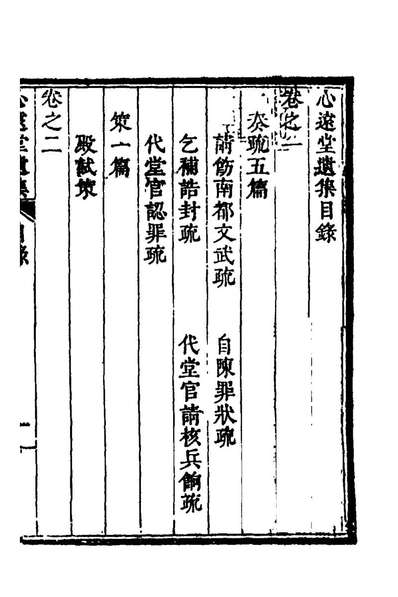 心遠堂遺集目錄
卷之一
奏疏五篇
請飭南都文武疏　自陳罪狀疏
乞補誥封疏　代堂官請核兵餉疏
代堂官認罪疏
策一篇
殿試策
卷之二
心遠堂遺集　目錄　一